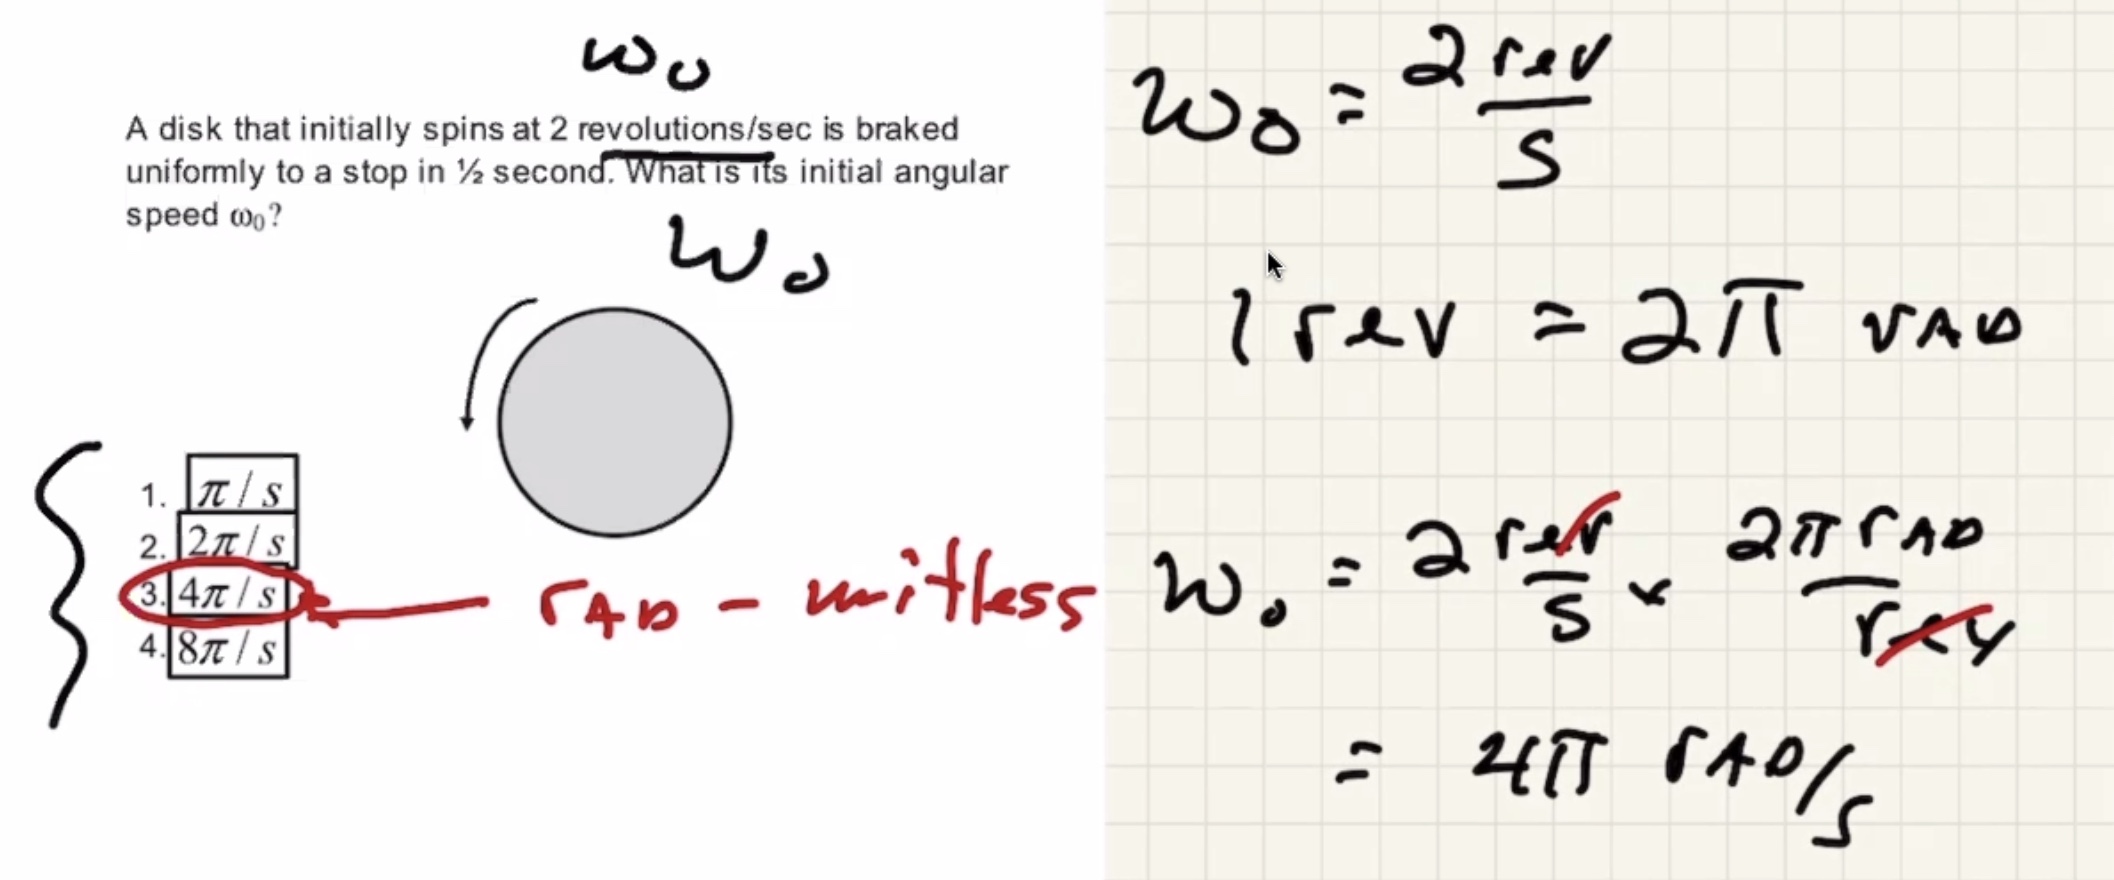 ω₀
A disk that initially spins at 2 revolutions/sec is braked
uniformly to a stop in ½ second. What is its initial angular
speed ω₀?
ω₀
1. π / s
2. 2π / s
3. 4π / s
4. 8π / s
rAD - unitless
ω₀ = 2 rev / s
1 rev = 2π rAD
ω₀ = 2 rev / s × 2π rAD / rev
= 4π rAD/s